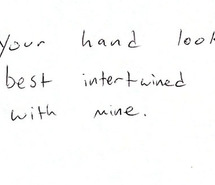 your hand look
best intertwined
with mine.